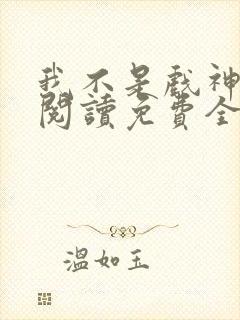 我不是戲神
閱讀免費全
溫如玉